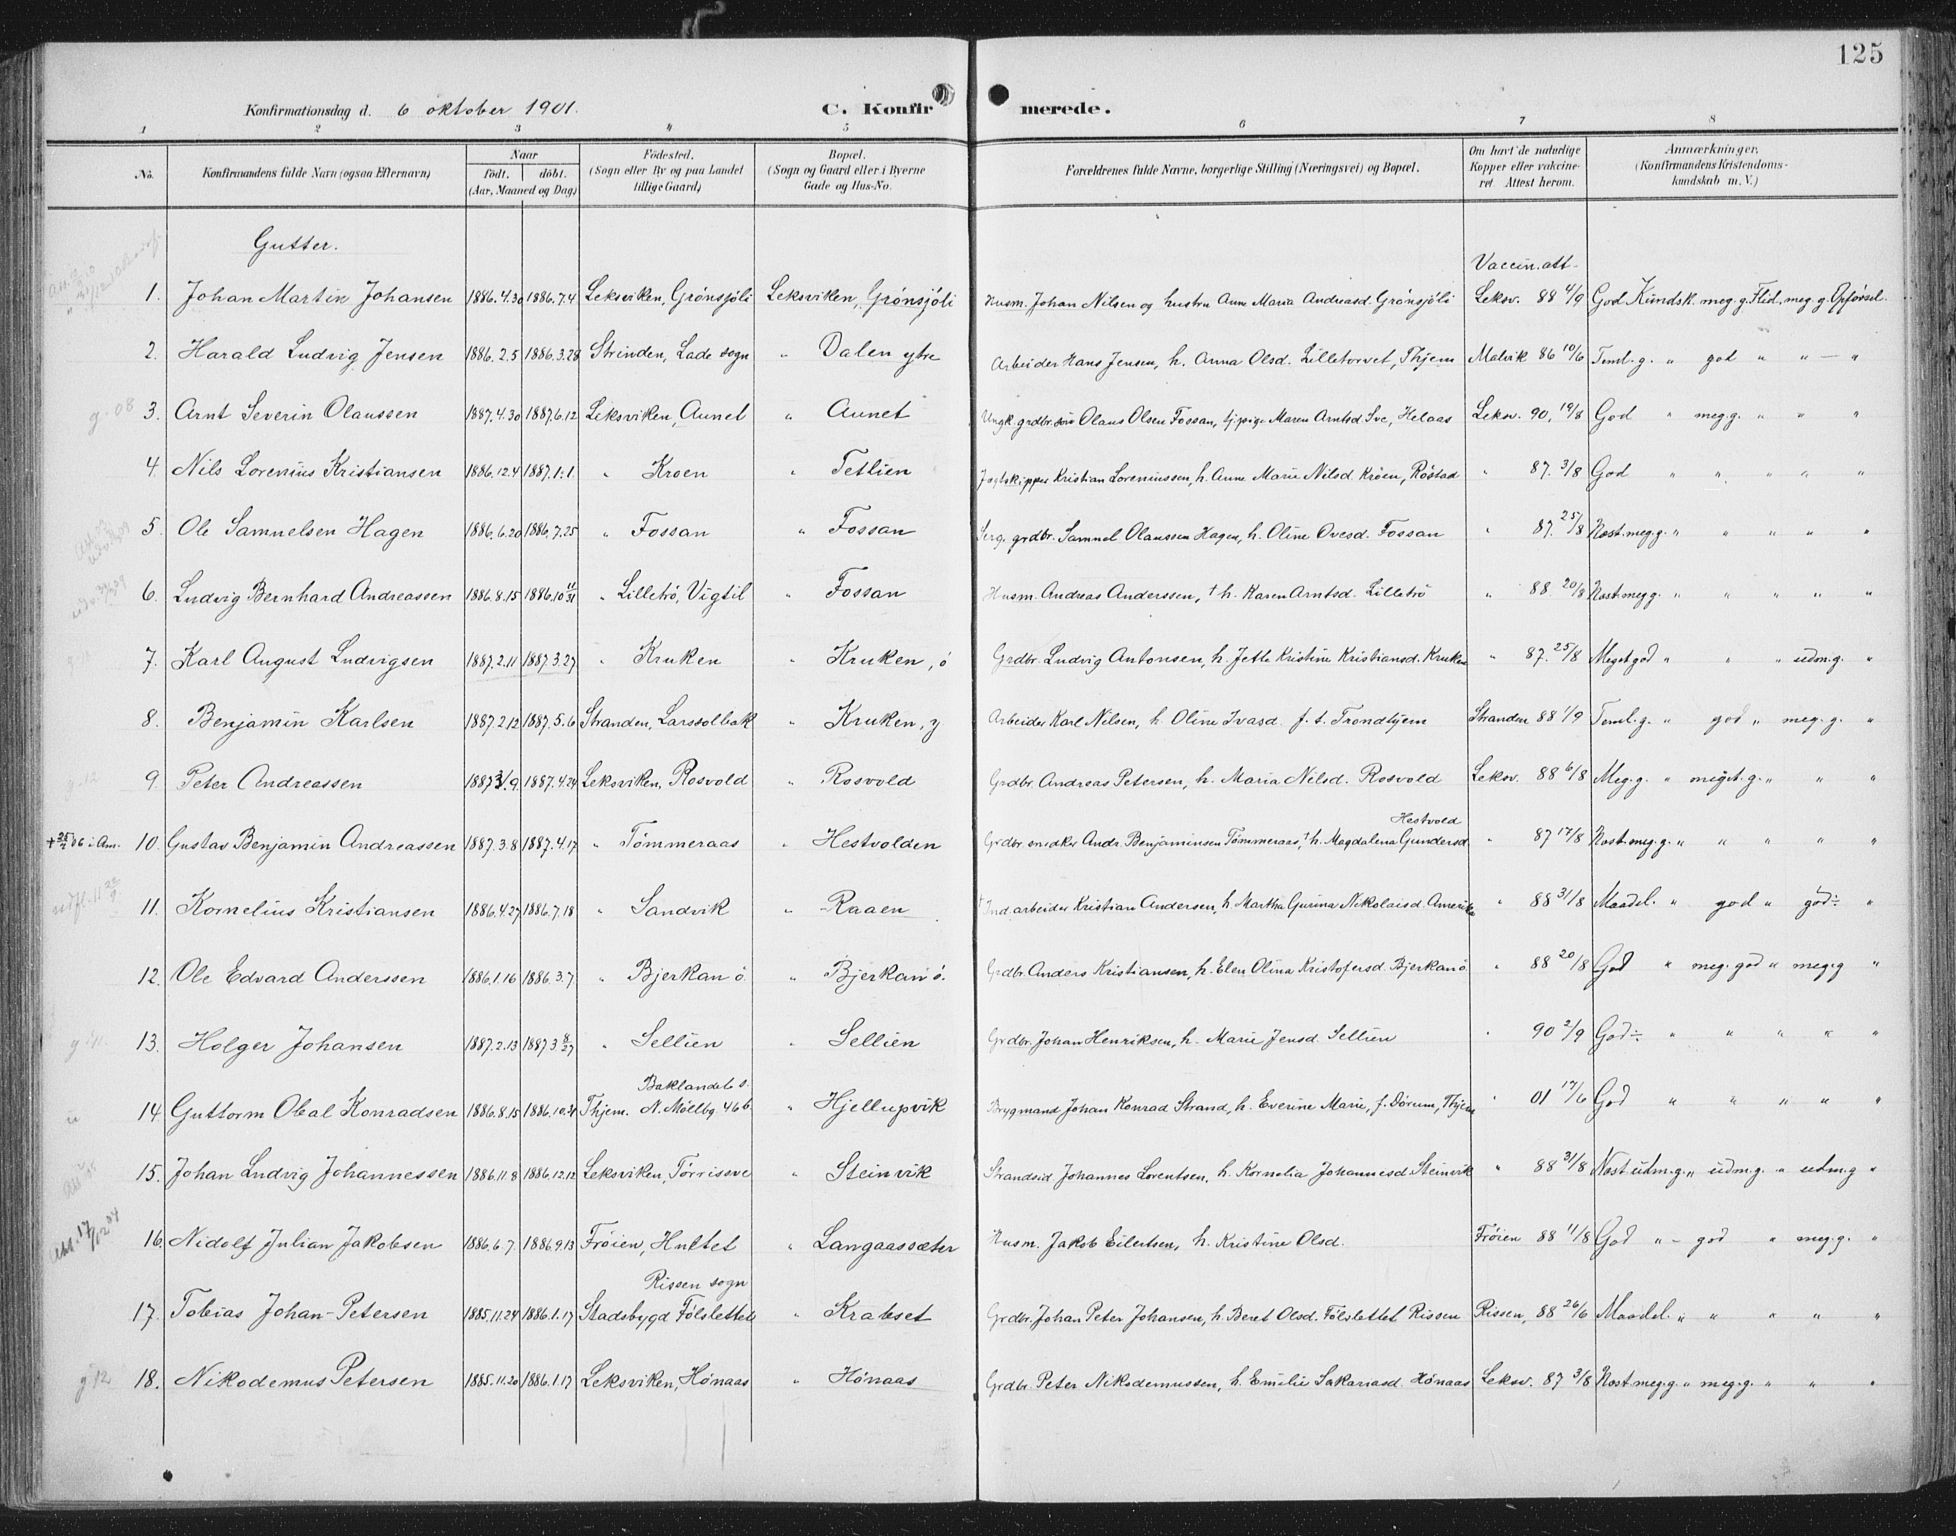 125
Konfirmationsdag d. 6 oktober 1901. C. Konfirmerede.
1 2 3 4 5 6 7 8
No. Konfirmandens fulde Navn (ogsaa Efternavn) Naar födt. döbt. (Aar, Maaned og Dag) Födested. (Sogn eller By og paa Landet tillige Gaard) Bopæl. (Sogn og Gaard eller i Byerne Gade og Hus-No. Forældrenes fulde Navne, borgerlige Stilling (Næringsvei) og Bopæl. Om havt de naturlige Kopper eller vakcineret. Attest herom. Anmærkninger, (Konfirmandens Kristendomskundskab m. V.)
Gutter.
Vaccin. att.
1. Johan Martin Johansen 1886.4.30 1886.7.4 Leksviken, Grónsjöli Leksviken, Grónsjöli Husm. Johan Nilsen og hustru Anne Maria Andreasd. Grónsjöli Leksv. 88 4/9 God Kundsk. meg. g. Flid, meg. g. Opførsel.
2. Harald Ludvig Jensen 1886.2.5 1886.3.28 Strinden, Lade sogn " Dalen ytre Arbeider Hans Jensen, h. Anna Olsd. Lilletorvet, Thjem Malvik 86 10/6 Teml. g. " god " " — "
3. Arnt Severin Olaussen 1887.4.30 1887.6.12 Leksviken, Aunet " Aunet Ungk. grdbr. søn Olaus Olsen Fossan, tj.pige Maren Arntsd. Sve, Helaas Leksv. 90, 19/8 God " meg. g. " " "
4. Nils Lorenius Kristiansen 1886.12.4 1887.1.1. " Kroen " Tetlien Jagtskipper Kristian Loreniussen, h. Anne Marie Nilsd. Króen, Róstad " 87. 3/8 God " " " " "
5. Ole Samuelsen Hagen 1886.6.20 1886.7.25 " Fossan " Fossan Serg. grdbr. Samuel Olaussen Hagen, h. Oline Ovesd. Fossan " 87. 25/8 Næst. meg. g. " " " " "
6. Ludvig Bernhard Andreassen 1886.8.15 1886.10 31 " Lilletrö, Vigtil " Fossan Husm. Andreas Anderssen, † h. Karen Arntsd. Lilletrö " 88 20/8 Næst. meg g. " " " " "
7. Karl August Ludvigsen 1887.2.11 1887.3.27 " Kruken " Kruken, ö Grdbr. Ludvig Antonsen, h. Jette Kristine Kristiansd. Kruken " 87. 25/8 Meget god " " " udm. g. "
8. Benjamin Karlsen 1887.2.12 1887.5.6 Stranden, Larssolbak " Kruken, y Arbeider Karl Nilsen, h. Oline Ivasd. f. t. Trondhjem Stranden 88 1/9 Teml. g. " god " meg. g. "
9. Peter Andreassen 1887 3/9. 1887.4.24 Leksviken, Rosvold " Rosvold Grdbr. Andreas Petersen, h. Maria Nilsd. Rosvold Leksv. 88 6/8 Meg. g. " meget. g. " " "
Hestvold
10. Gustav Benjamin Andreassen 1887.3.8 1887.4.17 " Tömmeraas " Hestvolden Grdbr. enedker Andr. Benjaminsen Tømmeraas, † h. Magdalena Gundersd " 87 17/8 Næst. meg. g. " " " " "
11. Kornelius Kristiansen 1886.4.27 1886.7.18 " Sandvik " Raaen † Ind. arbeider Kristian Andersen, h Martha Gurina Nikolaisd. Amerika " 88 31/8 Maadel. " god " god÷ "
12. Ole Edvard Anderssen 1886.1.16 1886.3.7 " Bjerkan ö. " Bjerkan ö. Grdbr. Anders Kristiansen, h. Elen Olina Kristofersd. Bjerkan ö " 88 20/8 God " meg. god " meg. g "
13. Holger Johansen 1887.2.13 1887 3 27 " Sellien " Sellien Grdbr. Johan Henriksen, h. Marie Jensd. Sellien " 90 2/9 God÷ " " " " "
Baklandet s.
14. Guttorm Obal Konradsen 1886.8.15 1886.10.31 Thjem. N. Möllbg 46 b. " Hjellupvik Brygmand Johan Konrad Strand, h. Everine Marie, f. Dórum, Thjem " 01 17/6 God " " " " "
15. Johan Ludvig Johannessen 1886.11.8 1886.12.12 Leksviken, Tørrissve " Steinvik Strandsid Johannes Lorentsen, h. Kornelia Johannesd Steinvik " 88 31/8 Næst. udm. g. " udm. g. " udm. g "
16. Nidolf Julian Jakobsen 1886.6.7. 1886 9.13 Fröien, Hultet " Langaassæter Husm. Jakob Eilertsen, h. Kristine Olsd. Fröien 88 11/8 God " – god " meg. g. "
Rissen sogn
17. Tobias Johan Petersen 1885.11.24 1886.1.17 Stadsbygd Fölslettet " Krabset Grdbr. Johan Peter Johansen, h. Beret Olsd. Fölslettet Rissen Rissen, 88 26/6 Maadel. " " " " "
18. Nikodemus Petersen 1885.11.20 1886.1.17 Leksviken, Hónaas " Hónaas Grdbr. Peter Nikodemussen, h. Emilie Sakariasd. Hónaas Leksv. 87 3/8 Næst. meg. g. " meg. g. " " "